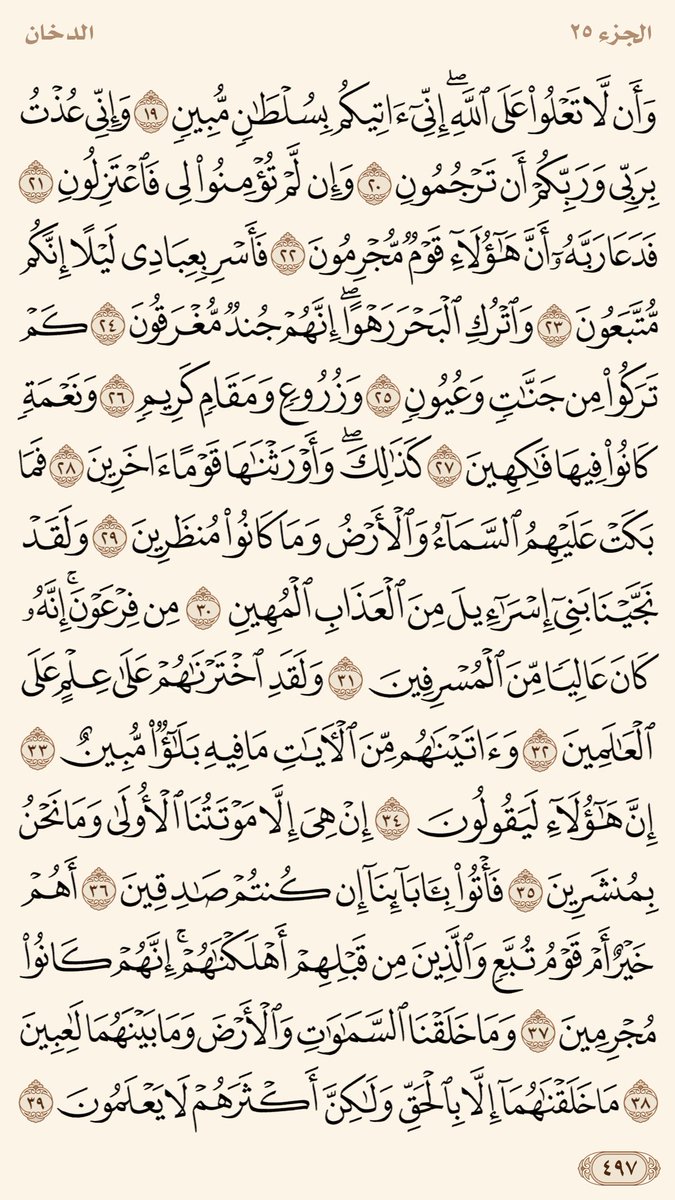 الجزء ٢٥ الدخان
وَأَن لَّا تَعْلُوا۟ عَلَى ٱللَّهِ ۖ إِنِّىٓ ءَاتِيكُم بِسُلْطَٰنٍ مُّبِينٍ ١٩ وَإِنِّى عُذْتُ
بِرَبِّى وَرَبِّكُمْ أَن تَرْجُمُونِ ٢٠ وَإِن لَّمْ تُؤْمِنُوا۟ لِى فَٱعْتَزِلُونِ ٢١
فَدَعَا رَبَّهُۥٓ أَنَّ هَٰٓؤُلَآءِ قَوْمٌ مُّجْرِمُونَ ٢٢ فَأَسْرِ بِعِبَادِى لَيْلًا إِنَّكُم
مُّتَّبَعُونَ ٢٣ وَٱتْرُكِ ٱلْبَحْرَ رَهْوًا ۖ إِنَّهُمْ جُندٌ مُّغْرَقُونَ ٢٤ كَمْ
تَرَكُوا۟ مِن جَنَّٰتٍ وَعُيُونٍ ٢٥ وَزُرُوعٍ وَمَقَامٍ كَرِيمٍ ٢٦ وَنَعْمَةٍ
كَانُوا۟ فِيهَا فَٰكِهِينَ ٢٧ كَذَٰلِكَ ۖ وَأَوْرَثْنَٰهَا قَوْمًا ءَاخَرِينَ ٢٨ فَمَا
بَكَتْ عَلَيْهِمُ ٱلسَّمَآءُ وَٱلْأَرْضُ وَمَا كَانُوا۟ مُنظَرِينَ ٢٩ وَلَقَدْ
نَجَّيْنَا بَنِىٓ إِسْرَٰٓءِيلَ مِنَ ٱلْعَذَابِ ٱلْمُهِينِ ٣٠ مِن فِرْعَوْنَ ۚ إِنَّهُۥ
كَانَ عَالِيًا مِّنَ ٱلْمُسْرِفِينَ ٣١ وَلَقَدِ ٱخْتَرْنَٰهُمْ عَلَىٰ عِلْمٍ عَلَى
ٱلْعَٰلَمِينَ ٣٢ وَءَاتَيْنَٰهُم مِّنَ ٱلْءَايَٰتِ مَا فِيهِ بَلَٰٓؤٌا۟ مُّبِينٌ ٣٣
إِنَّ هَٰٓؤُلَآءِ لَيَقُولُونَ ٣٤ إِنْ هِىَ إِلَّا مَوْتَتُنَا ٱلْأُولَىٰ وَمَا نَحْنُ
بِمُنشَرِينَ ٣٥ فَأْتُوا۟ بِـَٔابَآئِنَآ إِن كُنتُمْ صَٰدِقِينَ ٣٦ أَهُمْ
خَيْرٌ أَمْ قَوْمُ تُبَّعٍ وَٱلَّذِينَ مِن قَبْلِهِمْ ۚ أَهْلَكْنَٰهُمْ ۖ إِنَّهُمْ كَانُوا۟
مُجْرِمِينَ ٣٧ وَمَا خَلَقْنَا ٱلسَّمَٰوَٰتِ وَٱلْأَرْضَ وَمَا بَيْنَهُمَا لَٰعِبِينَ
٣٨ مَا خَلَقْنَٰهُمَآ إِلَّا بِٱلْحَقِّ وَلَٰكِنَّ أَكْثَرَهُمْ لَا يَعْلَمُونَ ٣٩
٤٩٧